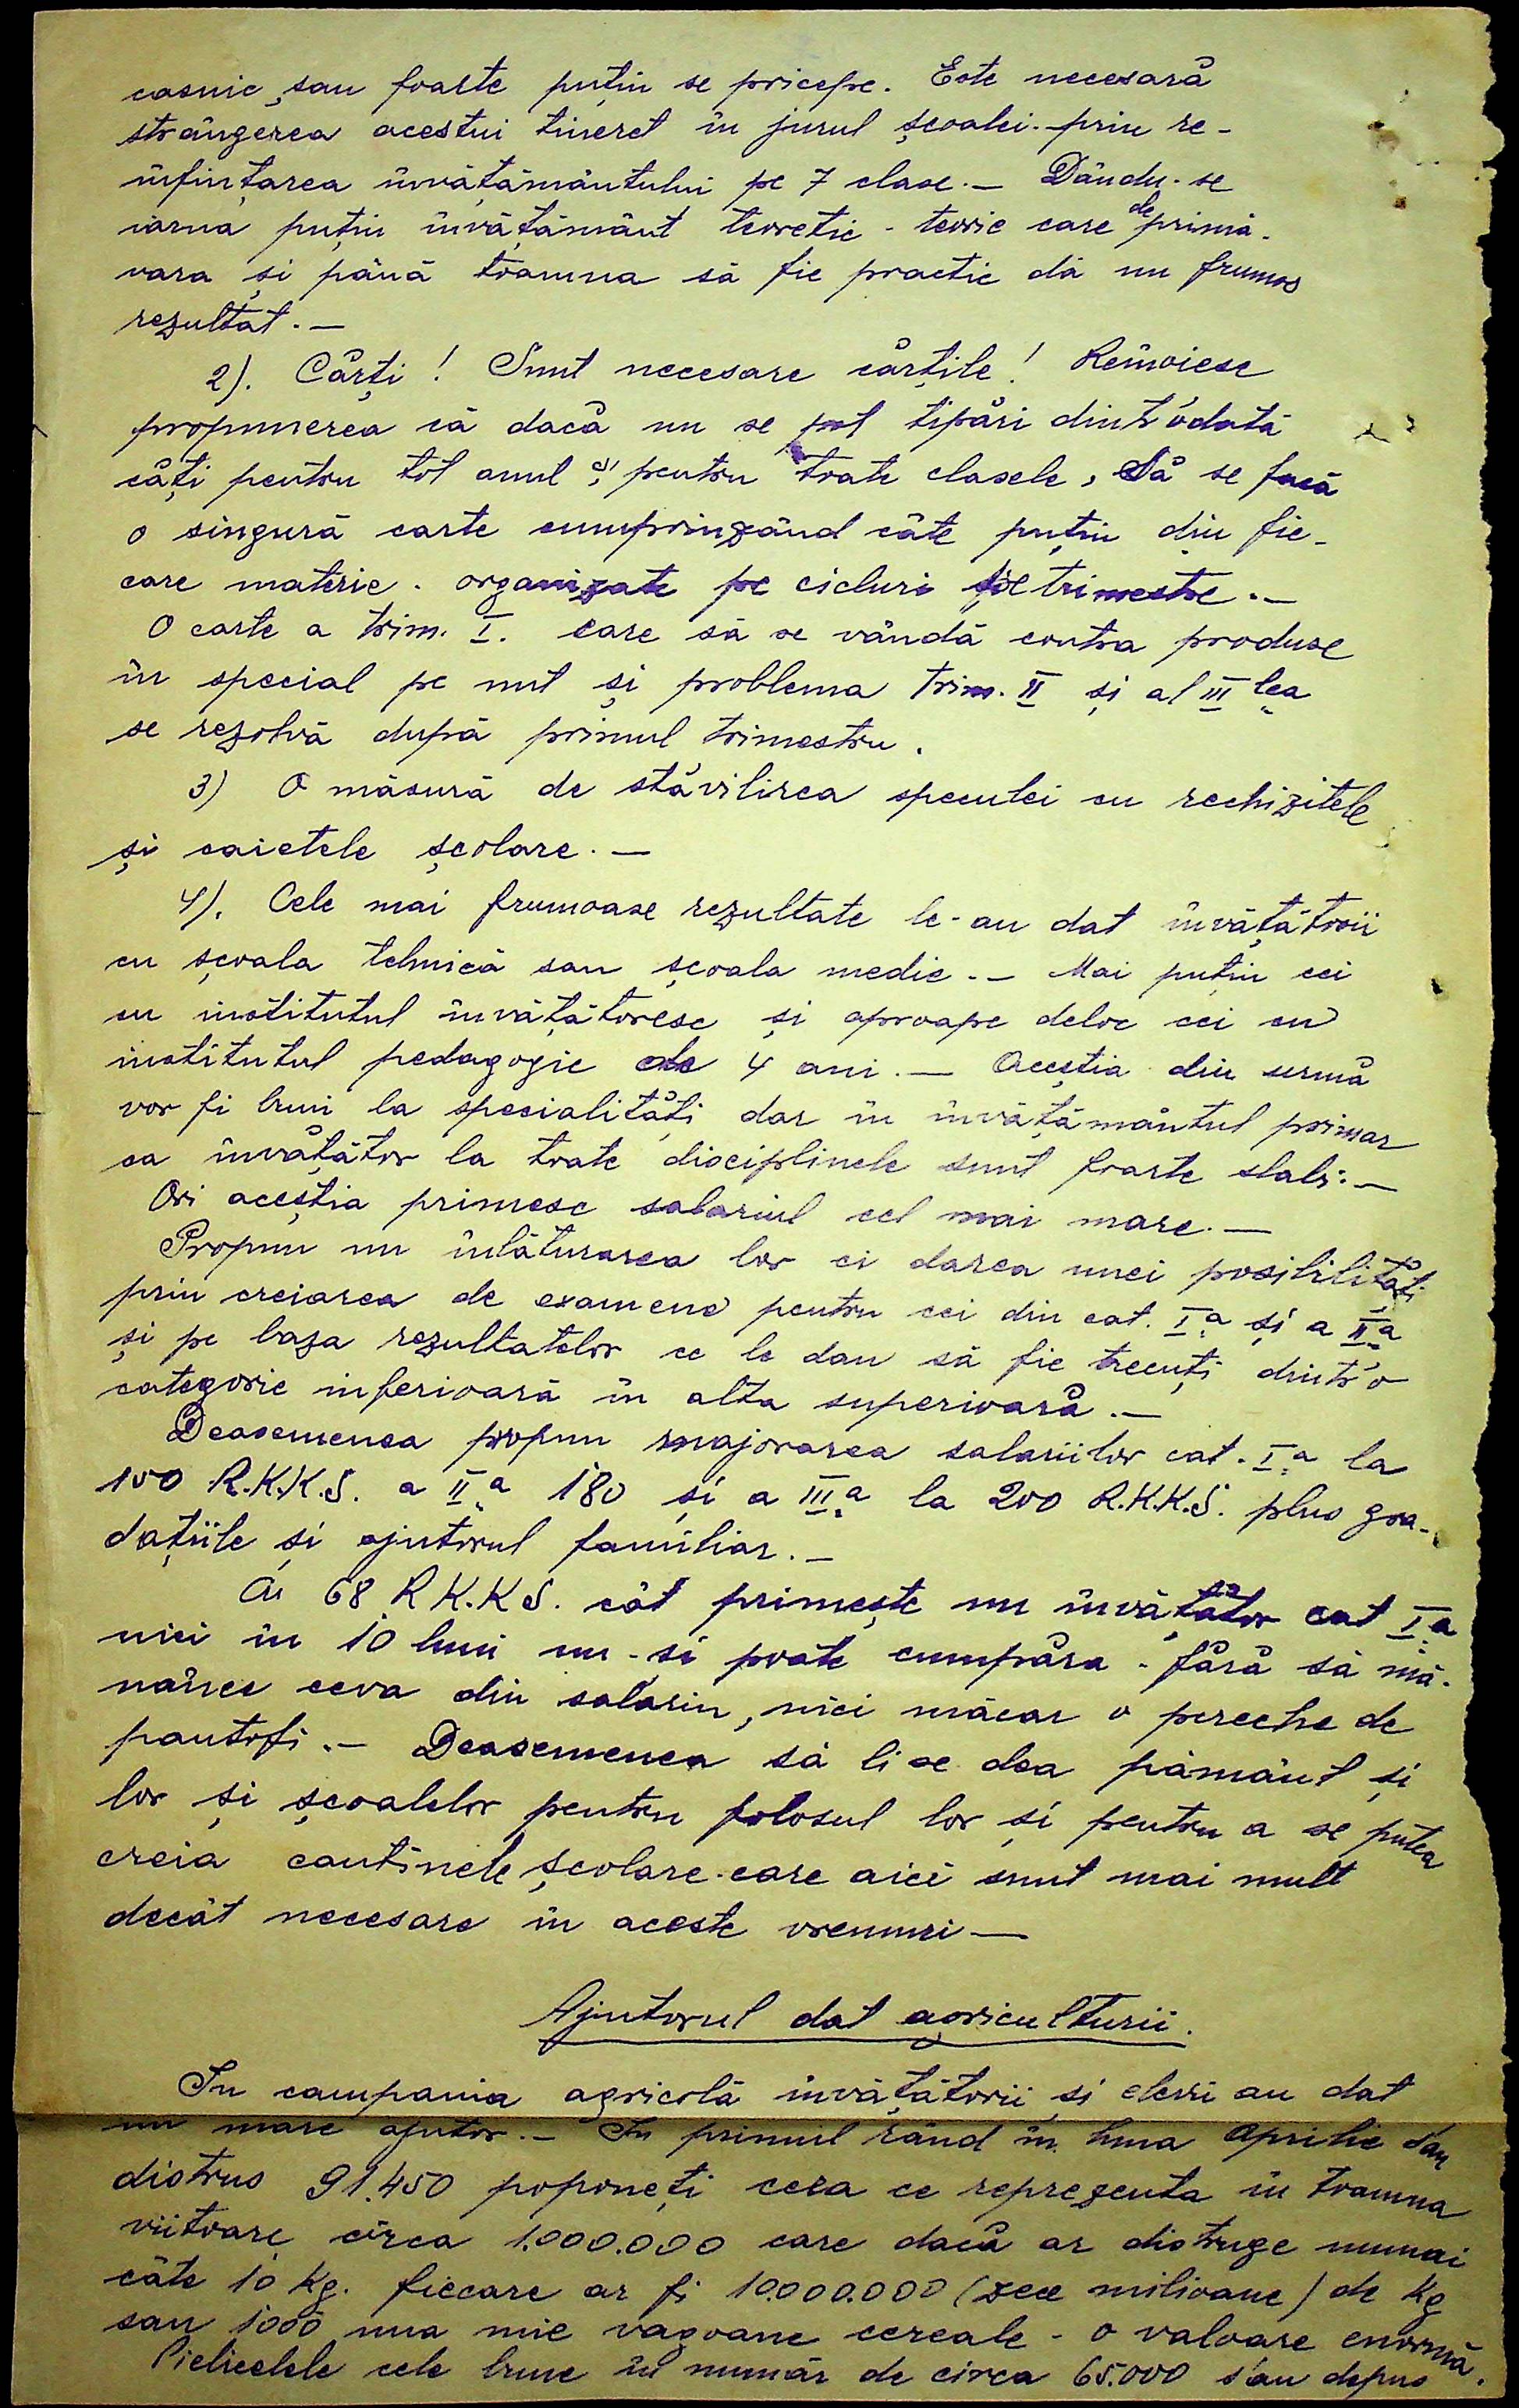 casnic, sau foarte puțin se pricepe. Este necesară
strângerea acestui tineret în jurul școalei - prin re-
înființarea învățământului pe 7 clase. — Dându-se
iarna puțin învățământ teoretic - teorie care de primă-
vara și până toamna să fie practic dă un frumos
rezultat. —
2). Cărți! Sunt necesare cărțile! Reînoiesc
propunerea că dacă nu se pot tipări dintr'odată
căți pentru tot anul și pentru toate clasele, Să se facă
o singură carte cumprinzând câte puțin din fie-
care materie - organizate pe cicluri și trimestre. —
O carte a trim. I. care să se vândă contra produse
în special pe unt și problema trim. II și al III lea
se rezolvă după primul trimestru.
3) O măsură de stăvilirea speculei cu rechizitele
și caietele școlare. —
4). Cele mai frumoase rezultate le-au dat învățătorii
cu școala tehnică sau școala medie. — Mai puțin cei
cu institutul învățătoresc și aproape deloc cei cu
institutul pedagogic de 4 ani. — Aceștia din urmă
vor fi buni la specialități dar în învățământul primar
ca învățător la toate disciplinele sunt foarte slabi. —
Ori aceștia primesc salariul cel mai mare. —
Propun nu înlăturarea lor ci darea unei posibilități
prin creiarea de examene pentru cei din cat. I a și a II a
și pe baza rezultatelor ce le dau să fie trecuți dintr'o
categorie inferioară în alta superioară. —
Deasemenea propun majorarea salariilor cat. I a la
100 R.K.K.S. a II a 180 și a III a la 200 R.K.K.S. plus gra-
dațiile și ajutorul familiar. —
Cu 68 R K.K S. cât primește un învățător cat I a
nici în 10 luni nu-și poate cumpăra - fără să mă-
nânce ceva din salariu, nici măcar o pereche de
pantofi. — Deasemenea să li se dea pământ și
lor și școalelor pentru folosul lor și pentru a se putea
creia cantinele școlare - care aici sunt mai mult
decât necesare în aceste vremuri —
Ajutorul dat agriculturii.
In campania agricolă învățătorii și elevii au dat
un mare ajutor. — In primul rând în luna Aprilie s'au
distrus 91.450 poponeți ceea ce reprezenta în toamna
viitoare circa 1.000.000 care dacă ar distruge numai
câte 10 kg. fiecare ar fi 10.000.000 (zece milioane) de kg
sau 1000 una mie vagoane cereale - o valoare enormă.
Pielicelele cele bune în număr de circa 65.000 s'au depus